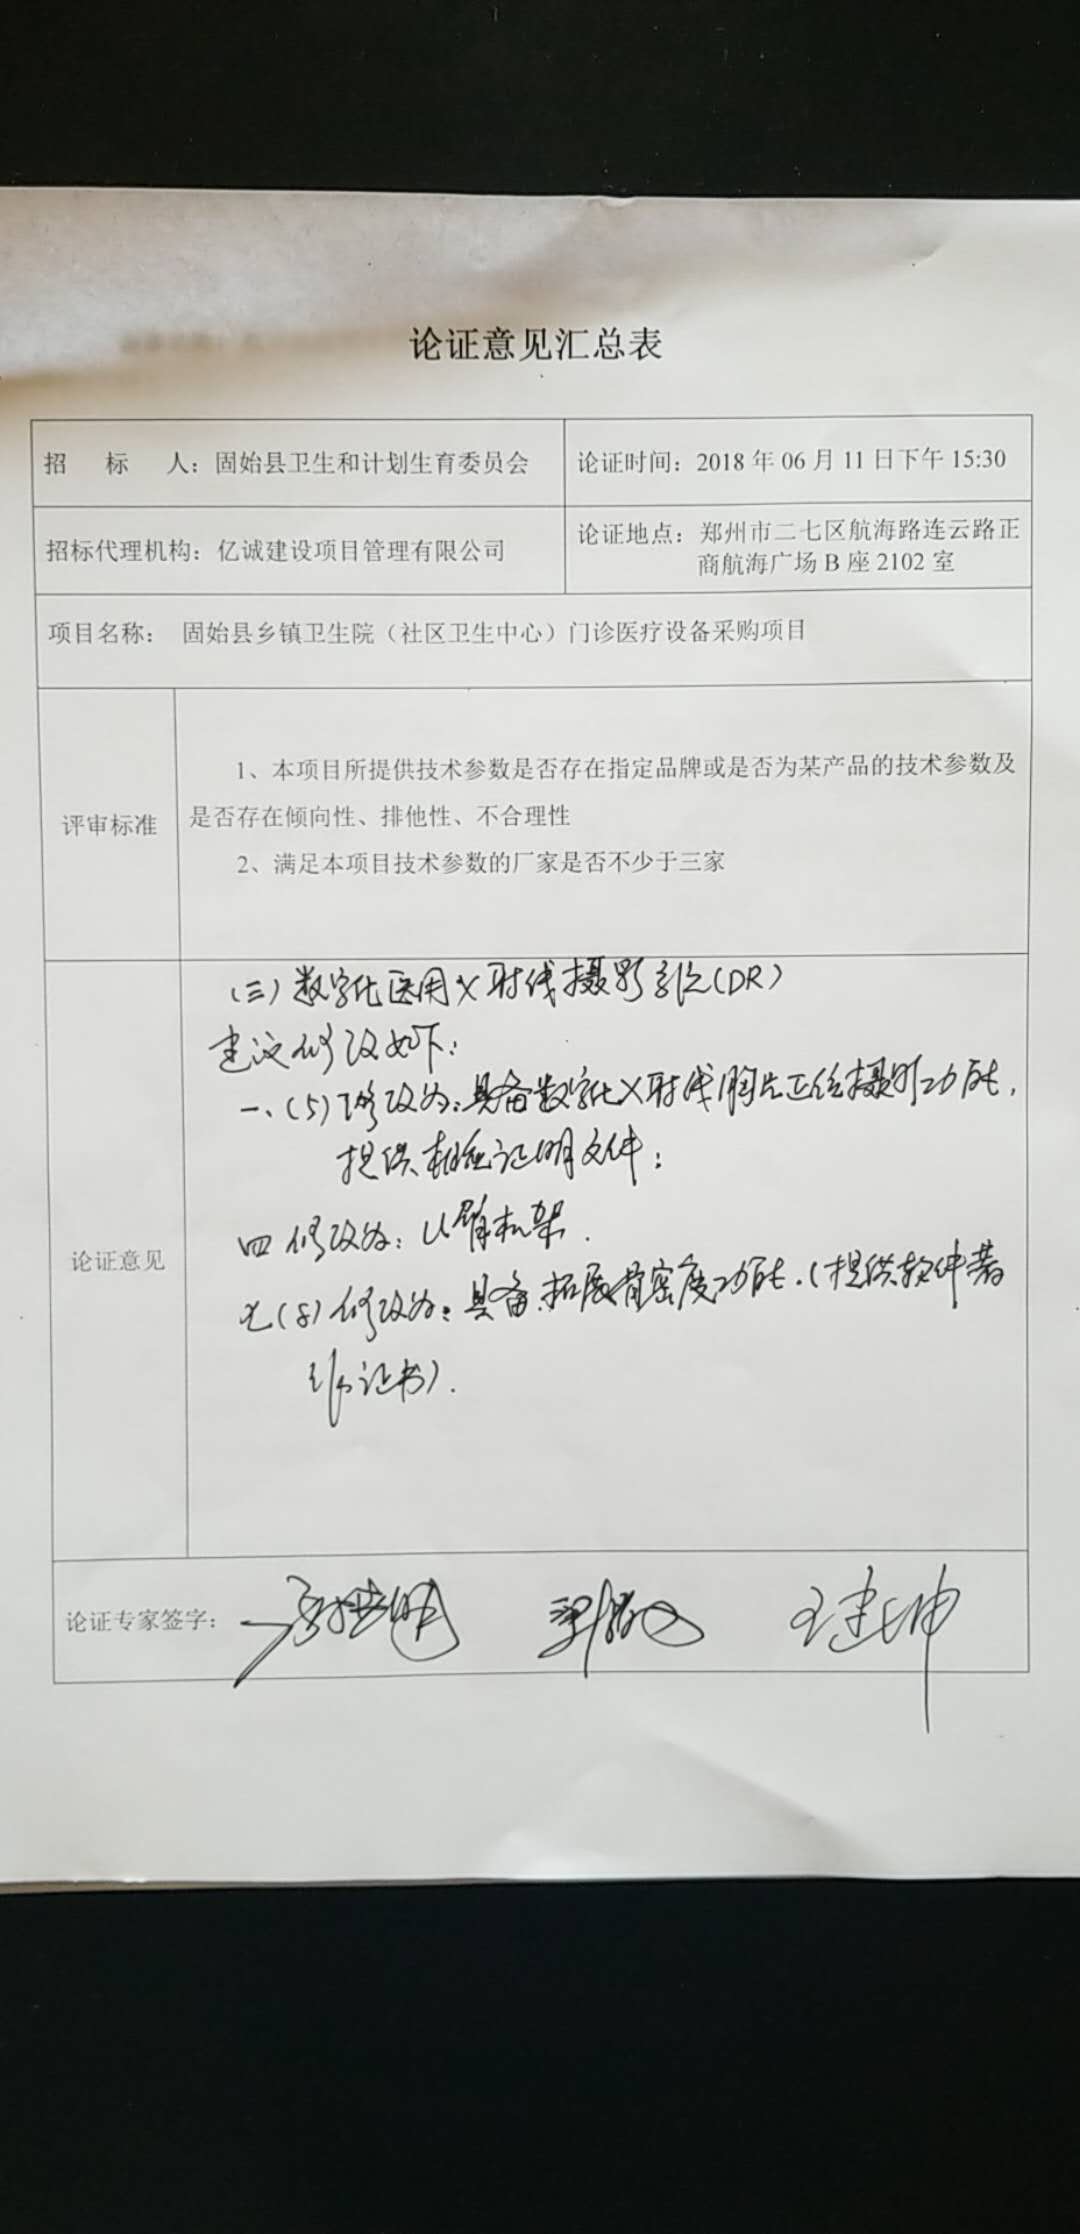 论证意见汇总表
招 标 人：固始县卫生和计划生育委员会
论证时间：2018 年 06 月 11 日下午 15:30
招标代理机构：亿诚建设项目管理有限公司
论证地点：郑州市二七区航海路连云路正
商航海广场 B 座 2102 室
项目名称： 固始县乡镇卫生院（社区卫生中心）门诊医疗设备采购项目
评审标准
1、本项目所提供技术参数是否存在指定品牌或是否为某产品的技术参数及
是否存在倾向性、排他性、不合理性
2、满足本项目技术参数的厂家是否不少于三家
论证意见
(三)数字化医用X射线摄影系统(DR)
建议修改如下：
一、(5)修改为：具备数字化X射线胸片正位摄影功能，
提供相应证明文件；
四 修改为：U臂机架.
七(8)修改为：具备拓展骨密度功能.(提供软件著
作证书).
论证专家签字：
王建坤